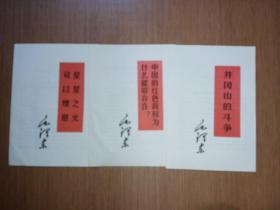 星星之火
可以燎原
毛泽东
中国的红色政权为
什么能够存在?
毛泽东
井冈山的斗争
毛泽东